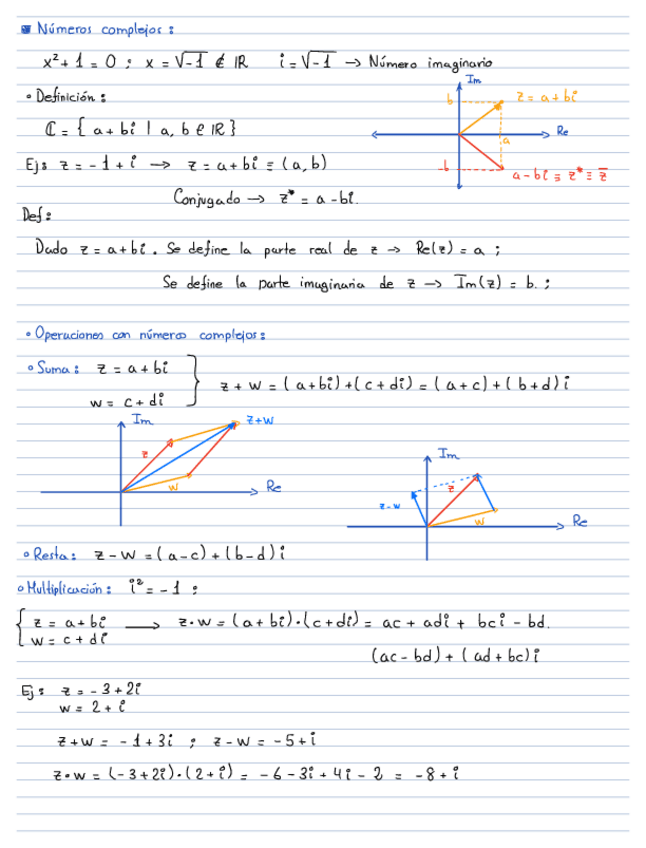 Números complejos:
x² + 1 = 0 ; x = √-1 ∉ ℝ i = √-1 → Número imaginario
Im
b
z = a + bi
Re
a
-b
a - bi ≡ z* ≡ z̄
• Definición:
ℂ = { a + bi | a, b ∈ ℝ }
Ej: z = -1 + i → z = a + bi ≡ (a, b)
Conjugado → z* = a - bi.
Def:
Dado z = a + bi. Se define la parte real de z → Re(z) = a ;
Se define la parte imaginaria de z → Im(z) = b. ;
• Operaciones con números complejos:
◦ Suma: z = a + bi
w = c + di
z + w = (a + bi) + (c + di) = (a + c) + (b + d) i
Im
z+w
z
w
Re
Im
z-w
z
w
Re
◦ Resta: z - w = (a - c) + (b - d) i
◦ Multiplicación: i² = -1 ;
{ z = a + bi → z · w = (a + bi) · (c + di) = ac + adi + bci - bd.
w = c + di
(ac - bd) + (ad + bc) i
Ej: z = -3 + 2i
w = 2 + i
z + w = -1 + 3i ; z - w = -5 + i
z · w = (-3 + 2i) · (2 + i) = -6 - 3i + 4i - 2 = -8 + i